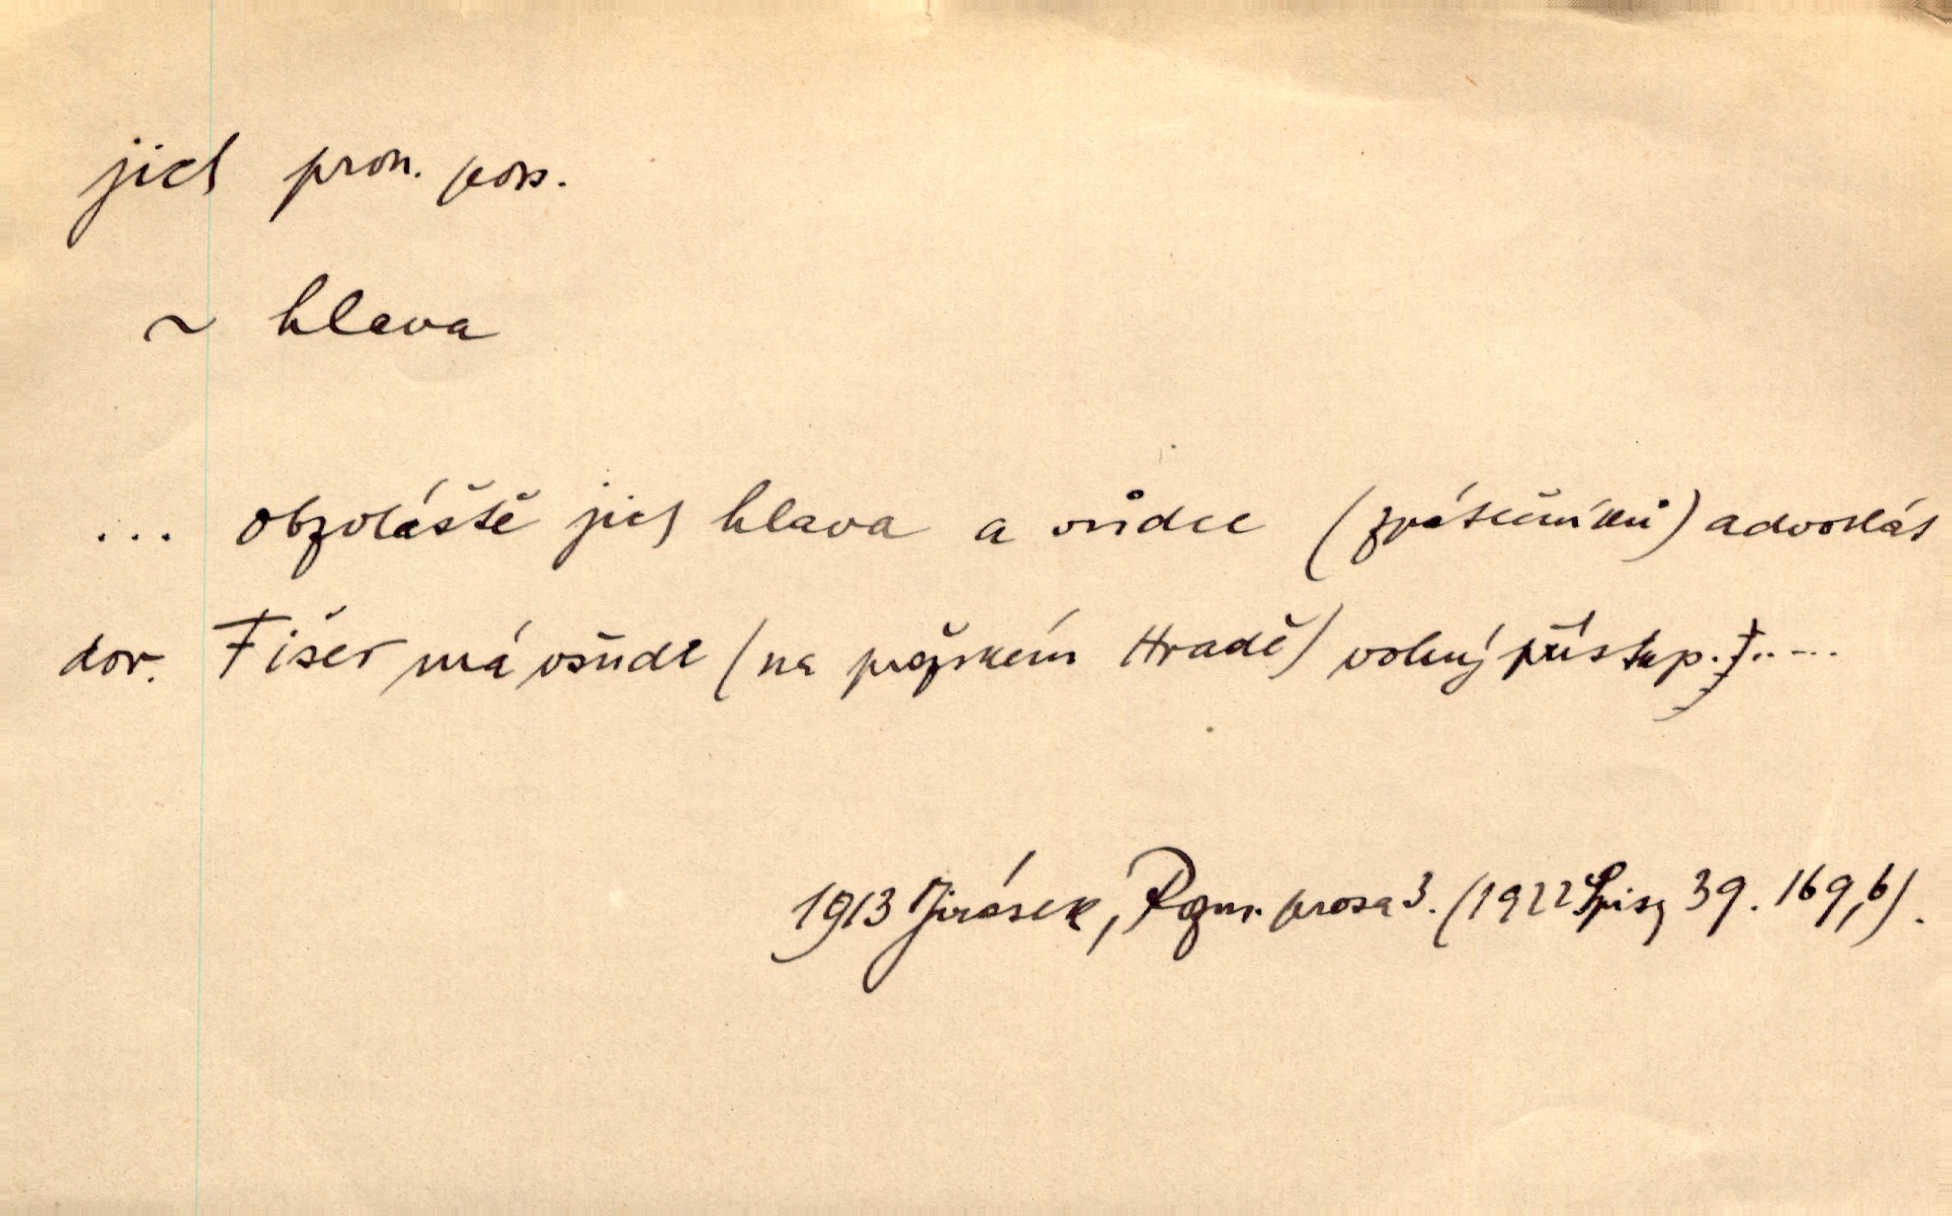 jich pron. poss.
~ hlava
... obzvláště jich hlava a vůdce (zpátečníků) advokát
dvor. Fišer má všude (na pražském Hradě) volný přístup.....
1913 Jirásek, Rozm. prosa 3. (1922 Spisy 39. 169,6).